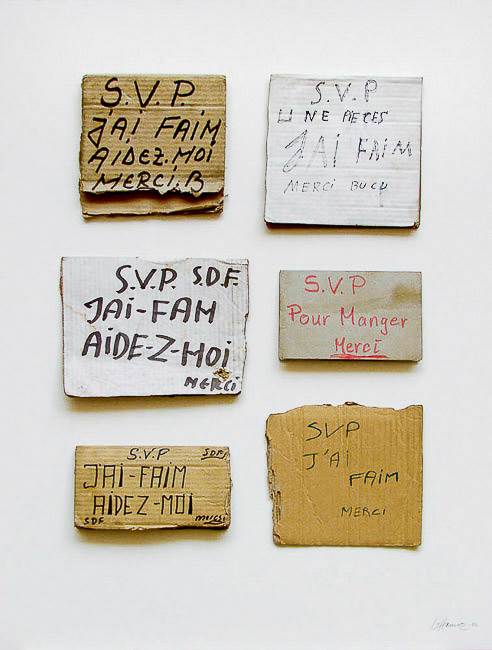 S.V.P.
J'AI FAIM
AIDEZ.MOI
MERCI.B
S.V.P
UNE PIECES
J'AI FAIM
MERCI BUCU
S.V.P. S.D.F.
JAi-FAM
AiDE-Z-MOi
MERCi
S.V.P
Pour Manger
Merci
S.V.P SDF
J'Ai-FAiM
AiDEZ-MOI
SDF merci
SVP
J'Ai
FAiM
MERCi